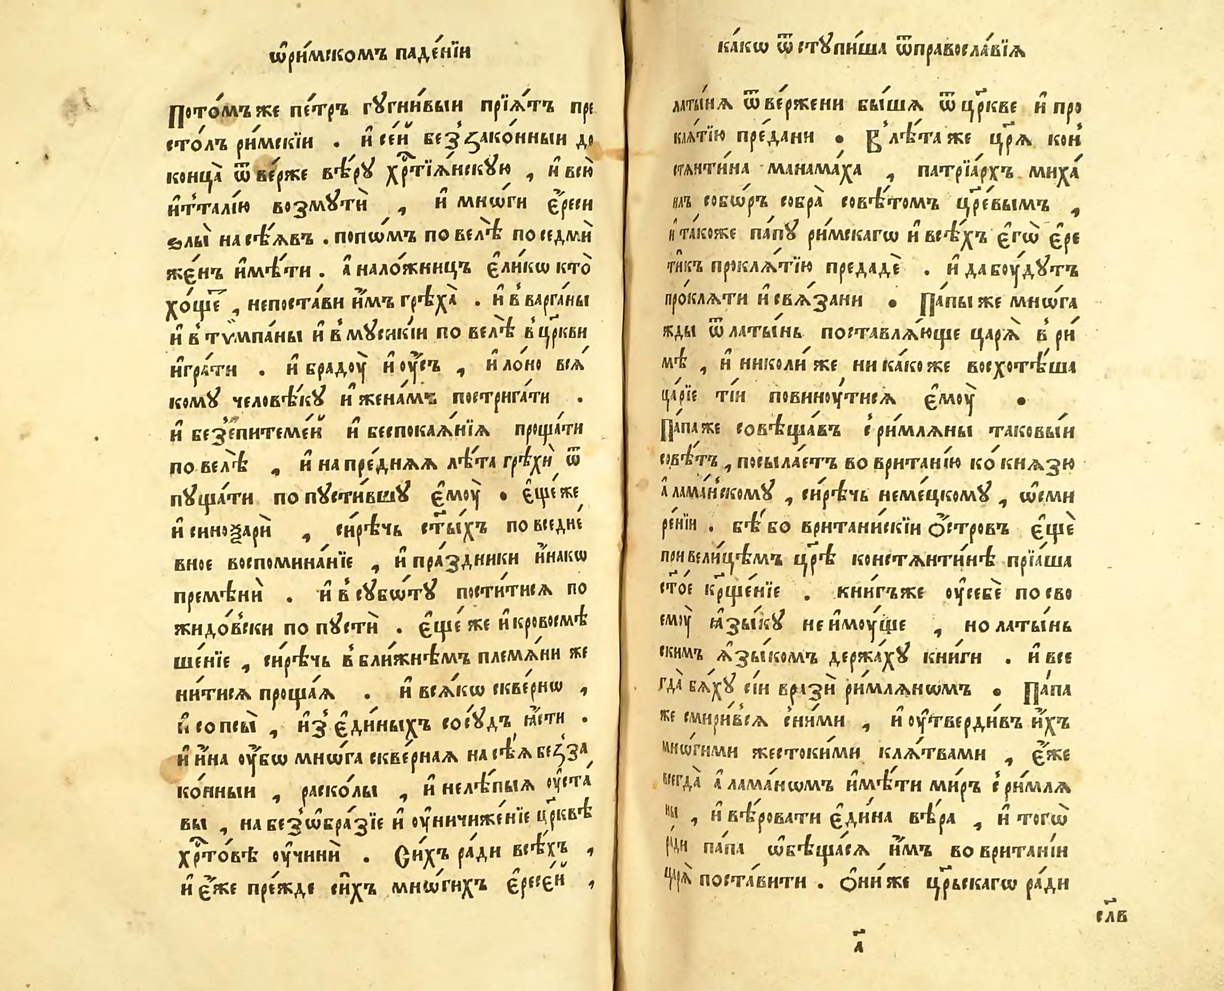 ѡ҆ри́мскомъ паде́нїи
Пото́мъже пе́тръ гꙋгни́выи прїѧ́тъ пре
сто́лъ ри́мскїи . и҆ се́й беззако́нныи до
конца̀ ѿве́рже вѣ́рꙋ хрⷭ҇тїѧ́нскꙋю , и҆ всю̀
и҆тталі́ю возмꙋтѝ , и҆ мнѡ́ги є҆́реси
ѕлы̀ насѣ́ѧвъ . попѡ́мъ повелѣ̀ поседмѝ
же́нъ и҆мѣ́ти . а҆ нало́жницъ є҆ли́кѡ кто̀
хо́щеⷮ , непоста́ви и҆̀мъ грѣха̀ . и҆ в̾варга́ны
и҆ в̾тѷмпа́ны и҆ в̾мꙋсикі́и повелѣ̀ в̾цр҃кви
и҆гра́ти . и҆ брадꙋ̀ и҆ оу҆́съ , и҆ ло́но всѧ́
комꙋ человѣ́кꙋ и҆ жена́мъ постриѓати .
и҆ без̾епитемі́й и҆ беспокаѧ́нїѧ проща́ти
повелѣ̀ , и҆ напре́днѧѧ лѣ́та грѣхѝ ѿ
пꙋща́ти попꙋсти́вшꙋ є҆мꙋ̀ . є҆ще́же
и҆ синоѯарѝ , си́рѣчь ст҃ы́хъ повседне́
вное воспомина́нїе , и҆ пра́здники и҆на́кѡ
премѣнѝ . и҆ в̾сꙋбѡ́тꙋ пости́тисѧ по
жидо́вски попꙋстѝ . є҆ще́ же и҆ кровосмѣ
ше́нїе , си́рѣчь в̾бли́жнѣмъ пле́мѧни же
ни́тисѧ проща́ѧ . и҆ всѧ́кѡ скве́рнѡ ,
и҆ сопсы̀ , и҆з̾є҆ди́ныхъ сосꙋ́дъ ꙗ҆́сти .
и҆ и҆́на оу҆́бѡ мнѡ́га скве́рнаѧ насѣ́ѧ безза
ко́нныи , раско́лы , и҆ нелѣ́пыѧ оу҆ста́
вы , набез̾ѡбра́зїе и҆ оу҆ничиже́нїе цр҃квѣ
хрⷭ҇то́вѣ оу҆чинѝ . Си́хъ ра́ди всѣ́хъ ,
и҆ є҆́же пре́жде си́хъ мнѡ́гихъ є҆ресе́й ,
ка́кѡ ѿстꙋпи́ша ѿправосла́вїѧ
латы́нѧ ѿве́ржени бы́шѧ ѿ цр҃кве и҆ про
клѧ́тїю пре́дани . В̾лѣ́таже цр҃ѧ̀ кон
стѧнти́на манама́ха , патрїа́рхъ миха́
илъ собѡ́ръ собра̀ совѣ́томъ цр҃е́вымъ ,
и҆ та́коже па́пꙋ ри́мскагѡ и҆ всѣ́хъ є҆гѡ̀ є҆ре
ти́къ проклѧ́тїю предадѐ . и҆ да бꙋ́дꙋтъ
про́клѧти и҆ свѧ́зани . Па́пыже мнѡ́га
жды ѿ латы́нь поставлѧ́юще царѧ̀ в̾ри́
мѣ , и҆ николи́же ника́коже восхотѣ́ша
ца́рїе ті́и повинꙋ́тисѧ є҆мꙋ̀ .
Па́паже совѣща́въ с̾ри́млѧны таковы́и
совѣ́тъ , посыла́етъ вобрита́нїю ко кнѧ́зю
а҆лама́нскомꙋ , си́рѣчь неме́цкомꙋ , ѡ҆сми
ре́нїи . бѣ̀ бо британи́скїи ѻ҆́стровъ є҆щѐ
при вели́цѣмъ цр҃ѣ̀ констѧнти́нѣ прїѧ́ша
ст҃о́е крⷭ҇ще́нїе . кни́гъже оу҆себѐ посво
емꙋ̀ ꙗ҆зы́кꙋ неи҆мꙋ́ще , но латы́нь
скимъ ѧ҆зы́комъ держа́хꙋ кни́ги . и҆ все
гда̀ бѧ́хꙋ сі́и вразѝ ри́млѧнѡмъ . Па́па
же смири́всѧ с̾ни́ми , и҆ оу҆тверди́въ и҆́хъ
мнѡ́гими жесто́кими клѧ́твами , є҆́же
всегда̀ а҆лама́нѡмъ и҆мѣ́ти ми́ръ с̾ри́млѧ
ны , и҆ вѣ́ровати є҆ди́на вѣ́ра , и҆ тогѡ̀
ра́ди па́па ѡ҆бѣща́сѧ и҆̀мъ вобрита́нїи
царѧ̀ поста́вити . Ѻ҆ни́же цр҃ьскагѡ ра́ди
а҃
слв҃